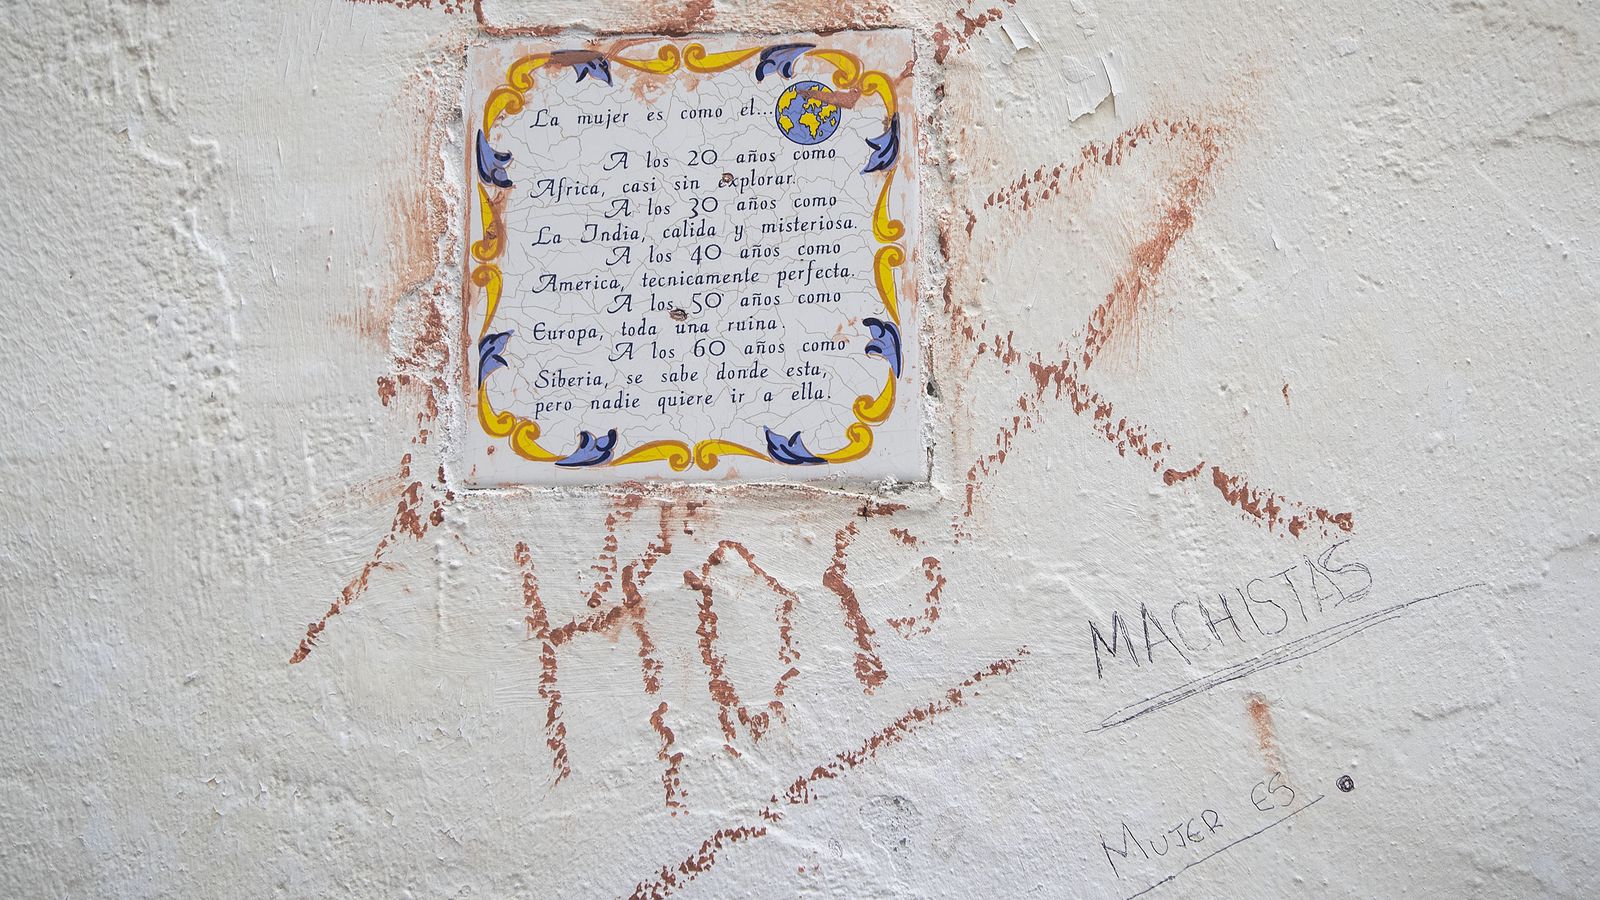 La mujer es como el...
A los 20 años como
Africa, casi sin explorar.
A los 30 años como
La India, calida y misteriosa.
A los 40 años como
America, tecnicamente perfecta.
A los 50 años como
Europa, toda una ruina.
A los 60 años como
Siberia, se sabe donde esta,
pero nadie quiere ir a ella.
MACHISTAS
MUJER ES